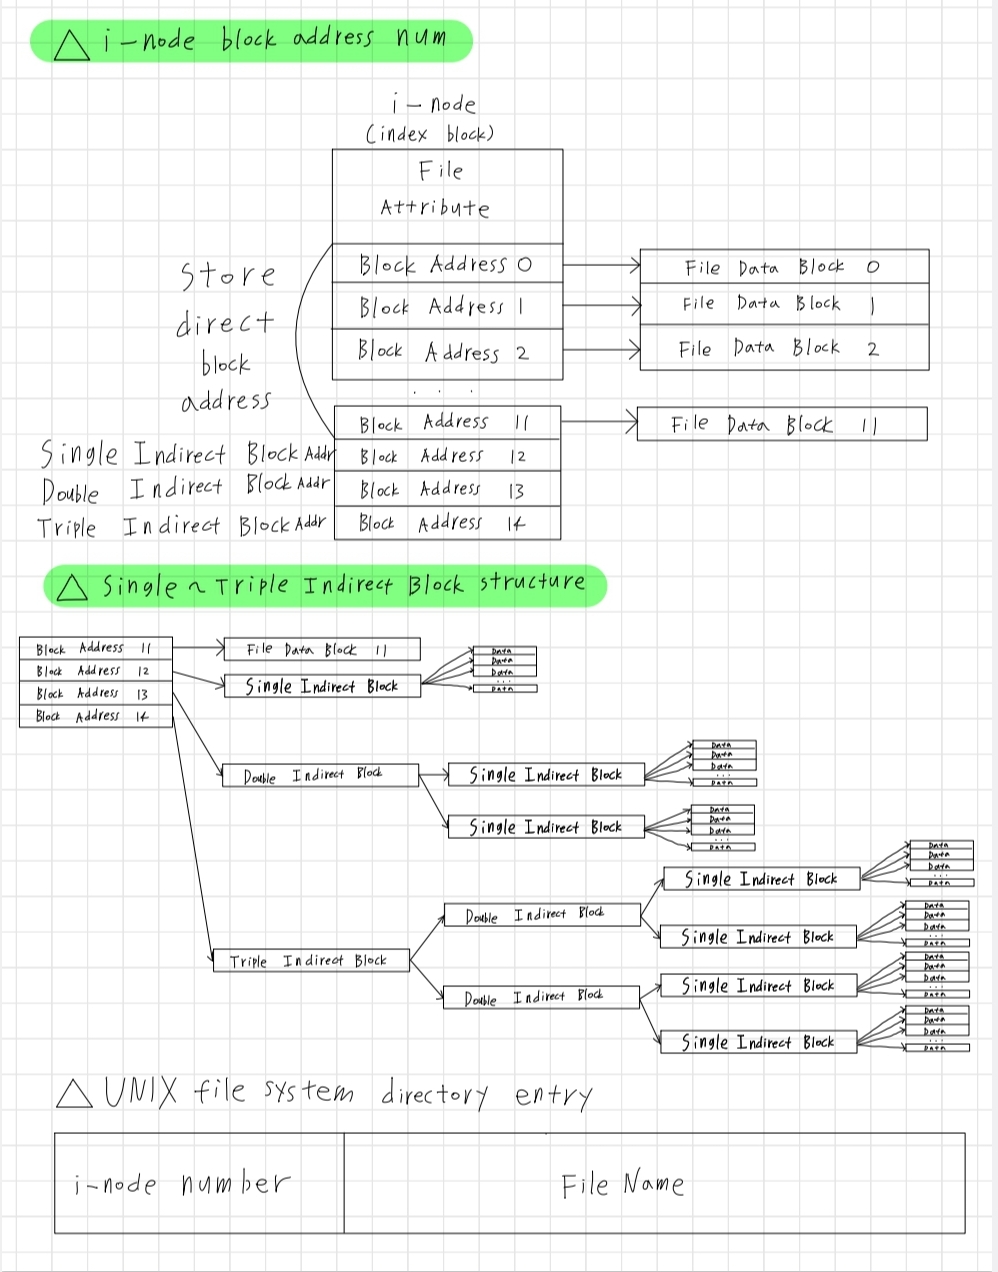 △ i-node block address num
i-node
(index block)
File
Attribute
Block Address 0
File Data Block 0
Store
direct
block
address
Block Address 1
File Data Block 1
Block Address 2
File Data Block 2
...
Block Address 11
File Data Block 11
Single Indirect Block Addr
Block Address 12
Double Indirect Block Addr
Block Address 13
Triple Indirect Block Addr
Block Address 14
△ Single ~ Triple Indirect Block structure
Block Address 11
Block Address 12
Block Address 13
Block Address 14
File Data Block 11
Single Indirect Block
Data
Data
Data
...
Data
Double Indirect Block
Single Indirect Block
Data
Data
Data
...
Data
Single Indirect Block
Data
Data
Data
...
Data
Triple Indirect Block
Double Indirect Block
Single Indirect Block
Data
Data
Data
...
Data
Single Indirect Block
Data
Data
Data
...
Data
Double Indirect Block
Single Indirect Block
Data
Data
Data
...
Data
Single Indirect Block
Data
Data
Data
...
Data
△ UNIX file system directory entry
i-node number
File Name